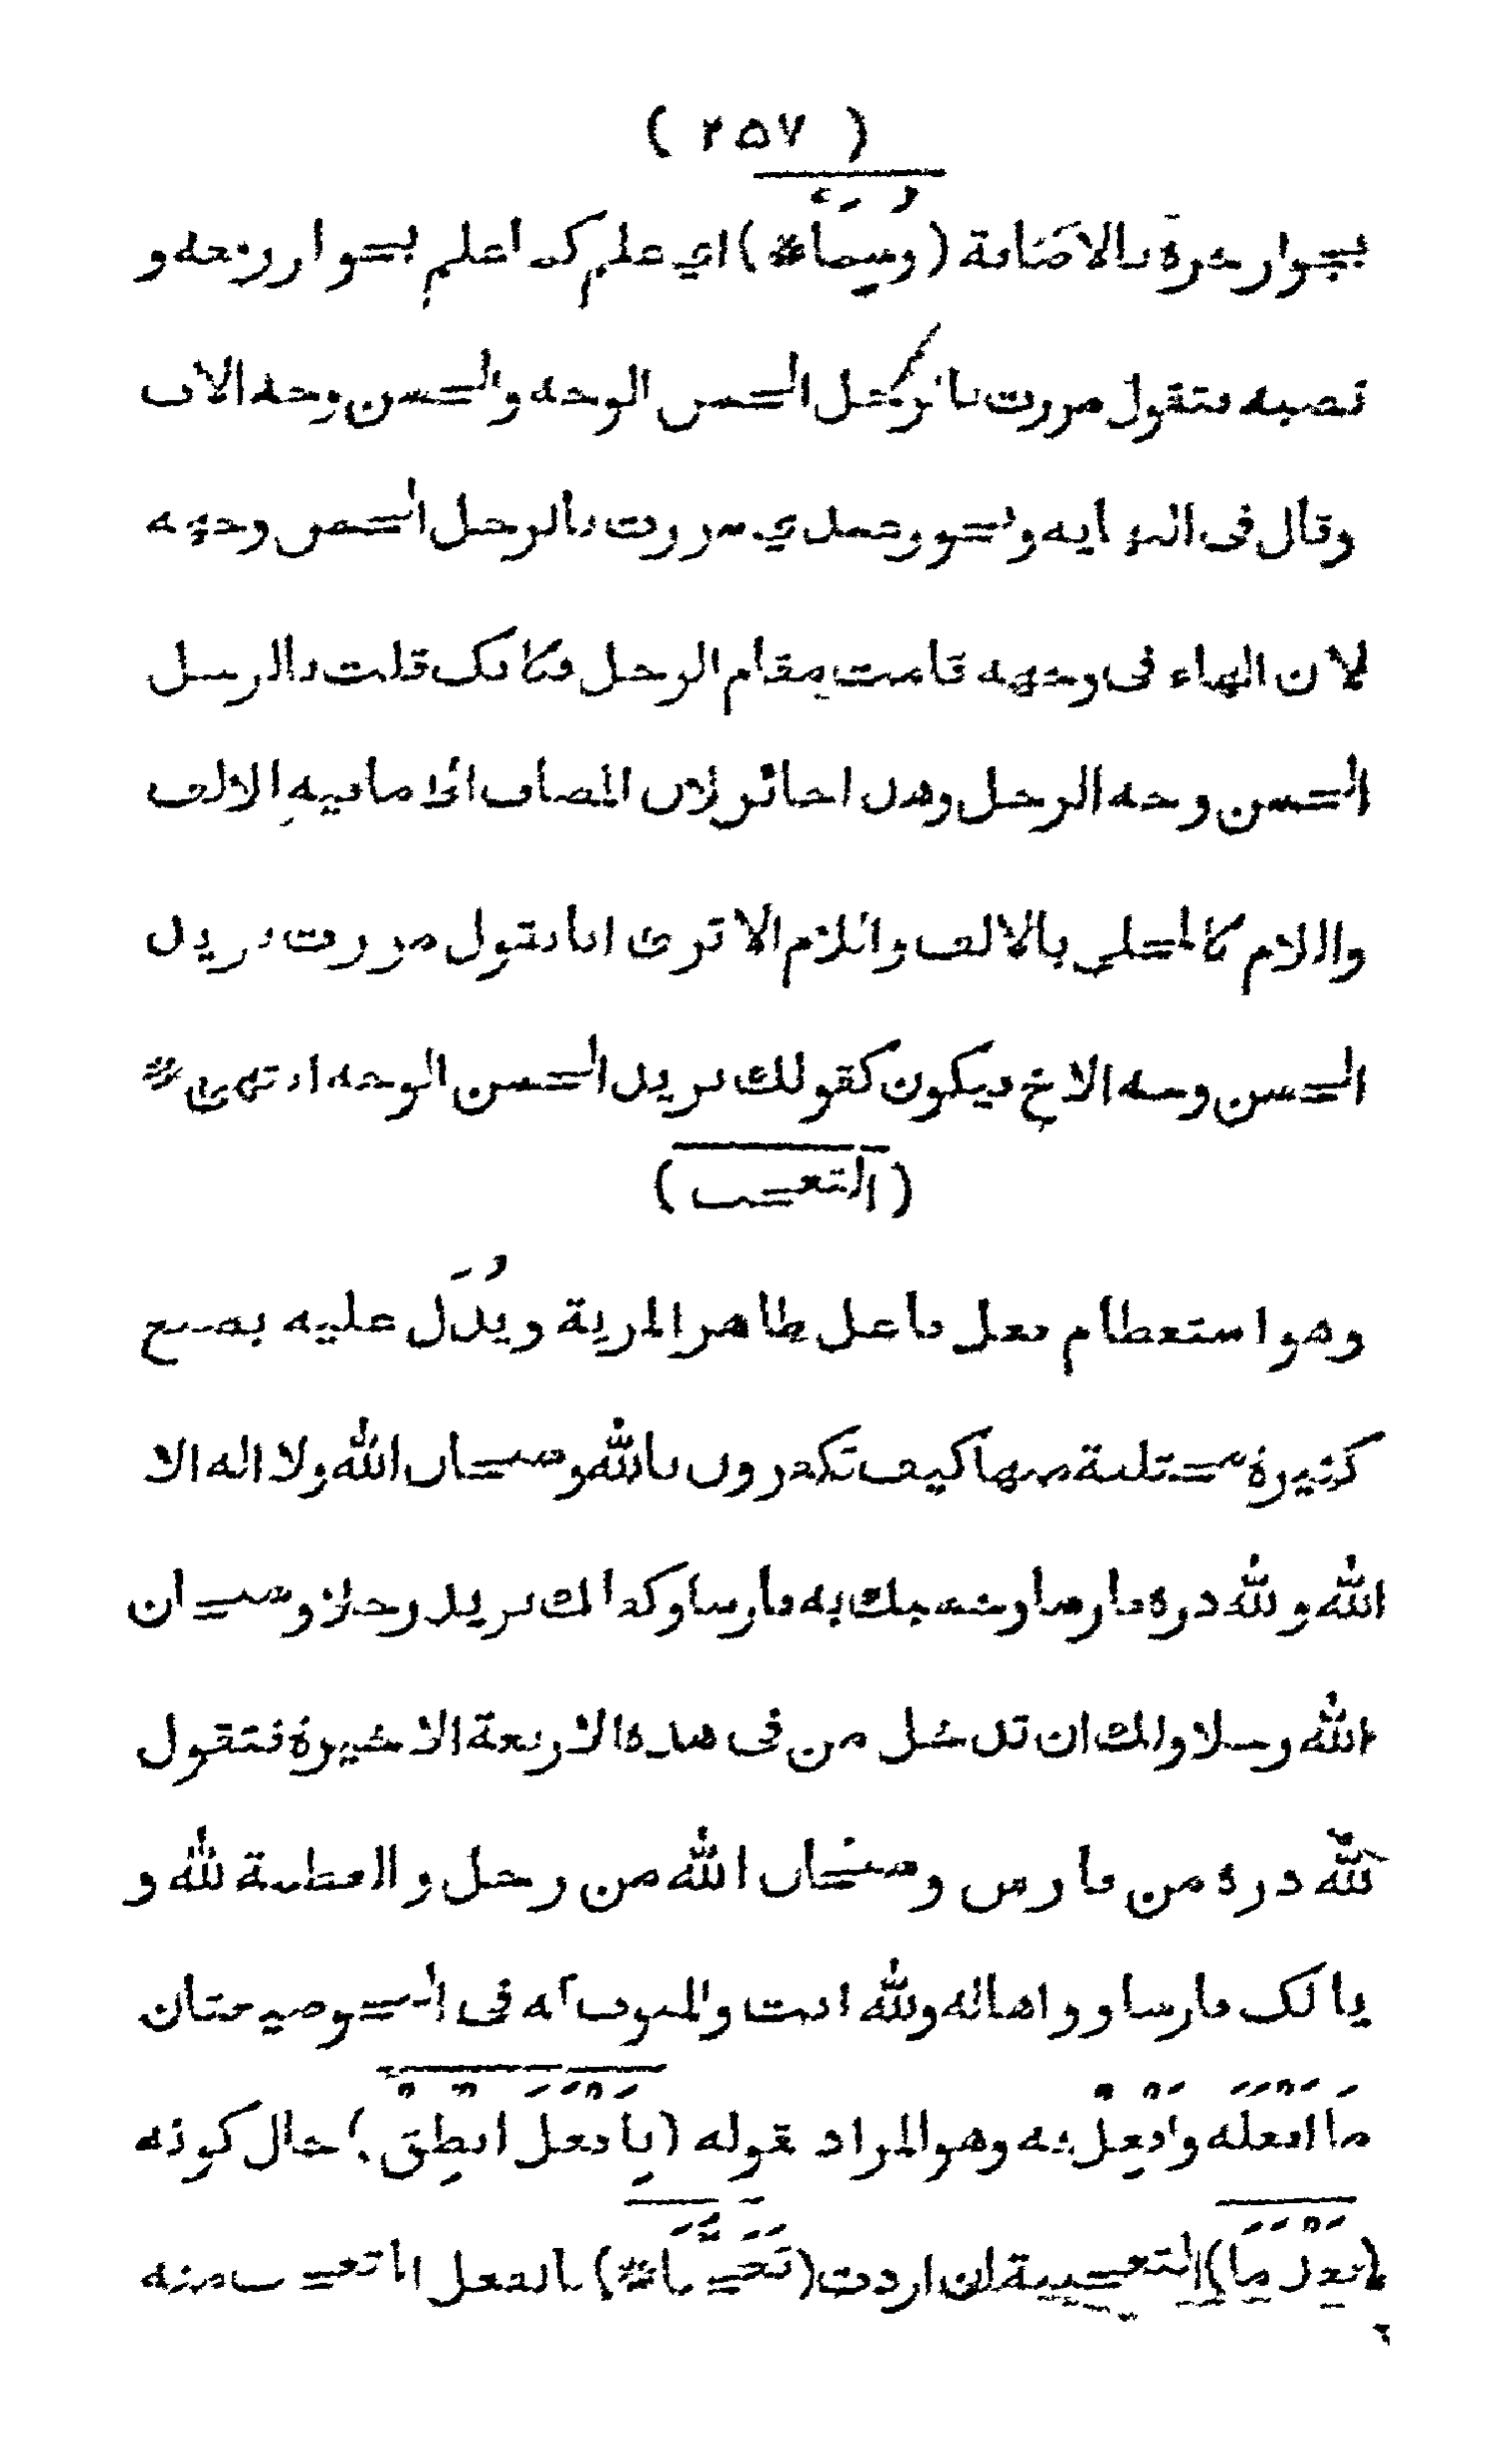 ( ٢٥٧ )
بجواز جره بالاضافة (وسماء*) اي علم كما علم بجواز رفعه و
نصبه فتقول مررت بالرجل الحسن الوجه والحسن وجه الاب
وقال فى النهاية ونحو وعندي مررت بالرجل الحسن وجهه
لان الهاء فى وجهه قامت مقام الرجل فكانك قلت بالرجل
الحسن وجه الرجل وهذا جائز لان المضاف الى مافيه الالف
واللام كالمحلى بالالف واللام الا ترى انا نقول مررت بزيد
الحسن وجه الاخ فيكون كقولك بزيد الحسن الوجه انتهى *
(التعجب)
وهو استعظام فعل فاعل ظاهر المزية ويُدَل عليه بصيغ
كثيرة مختلفة منها كيف تكفرون بالله وسبحان الله ولا اله الا
الله ولله دره فارسا وحسبك به فارسا وكذالك بزيد رجلا وسبحان
الله رجلا ولك ان تدخل من فى هذه الاربعة الاخيرة فتقول
لله دره من فارس وسبحان الله من رجل والعظمة لله و
يا لك فارسا وواها له ولله انت والمبوب له فى النحو صيغتان
مَا اَفْعَلَهُ وَاَفْعِلْ به وهو المراد بقوله (بِاَفْعَلَ انْطِقْ) حال كونه
(بَعْدَ مَا) التعجبية ان اردت (تَعَجُّبَا*) بالفعل اما تعجب منه